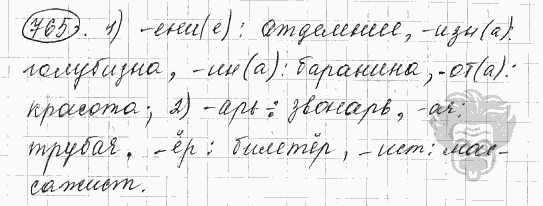 765. 1) -ени(е): отделение, -изн(а):
голубизна, -ин(а): баранина, -от(а):
красота; 2) -арь: звонарь, -ач:
трубач, -ёр: билетёр, -ист: мас-
сажист.